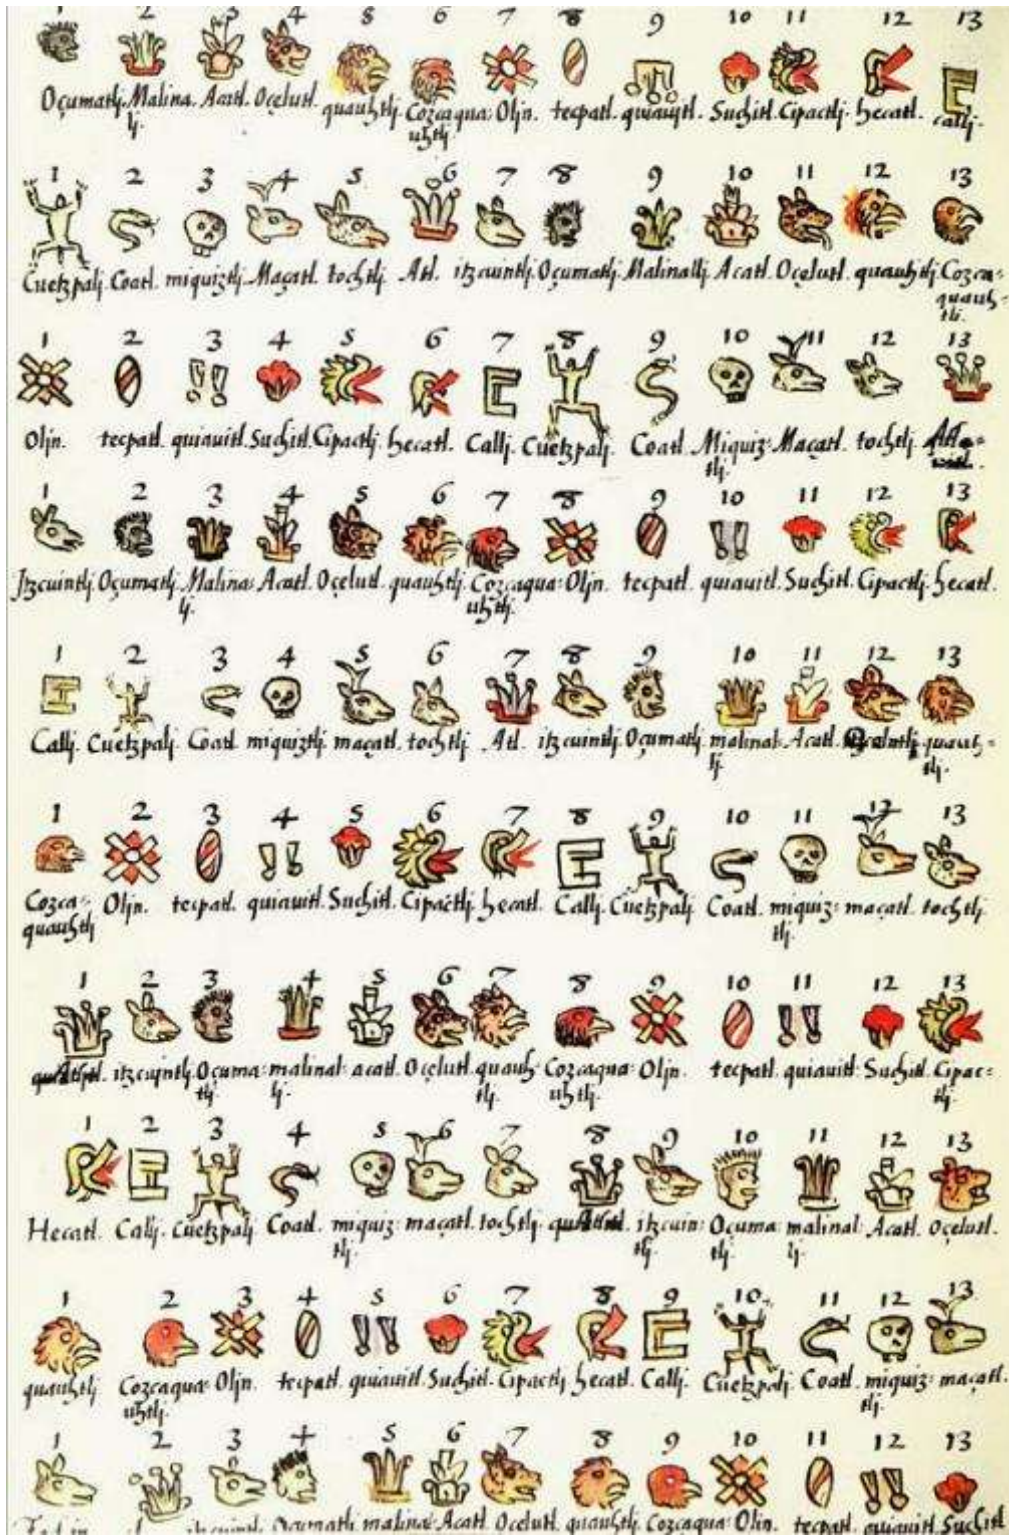 1 2 3 4 5 6 7 8 9 10 11 12 13
Oçumatlj. Malina- Acatl. Oçelutl. quauhtlj. Cozcaqua: Oljn. tecpatl. quiauitl. Suchitl. Cipactlj. hecatl. callj.
lj. uhtlj.
1 2 3 4 5 6 7 8 9 10 11 12 13
Cuetzpalj. Coatl. miquiztlj. Maçatl. tochtlj. Atl. itzcuintlj. Oçumatlj. Malinallj. Acatl. Oçelutl. quauhtlj. Cozca-
quauh-
tlj.
1 2 3 4 5 6 7 8 9 10 11 12 13
Oljn. tecpatl. quiauitl. Suchitl. Cipactlj. hecatl. Callj. Cuetzpalj. Coatl. Miquiz: Maçatl. tochtlj.
tlj.
1 2 3 4 5 6 7 8 9 10 11 12 13
Jtzcuintlj. Oçumatlj. Malina: Acatl. Oçelutl. quauhtlj. Cozcaqua: Oljn. tecpatl. quiauitl. Suchitl. Cipactlj. hecatl.
lj. uhtlj.
1 2 3 4 5 6 7 8 9 10 11 12 13
Callj. Cuetzpalj Coatl. miquiztlj. maçatl. tochtlj Atl. itzcuintlj. Oçumatlj. malinal: Acatl. quauh-
lj. tlj.
1 2 3 4 5 6 7 8 9 10 11 12 13
Cozca- Oljn. tecpatl. quiauitl. Suchitl. Cipactlj. hecatl. Callj. Cuetzpalj Coatl. miquiz: maçatl. tochtlj
quauhtlj tlj.
1 2 3 4 5 6 7 8 9 10 11 12 13
itzcuintlj. Oçuma: malinal: acatl. Oçelutl. quauh: Cozcaqua: Oljn. tecpatl. quiauitl. Suchitl. Cipac=
tlj. lj. tlj. uhtlj. tlj.
1 2 3 4 5 6 7 8 9 10 11 12 13
Hecatl. Callj. Cuetzpalj Coatl. miquiz: maçatl. tochtlj. itzcuin: Oçuma: malinal: Acatl. oçelutl.
tlj. tlj. tlj. lj.
1 2 3 4 5 6 7 8 9 10 11 12 13
quauhtlj Cozcaqua: Oljn. tecpatl. quiauitl. Suchitl. Cipactlj hecatl. Callj. Cuetzpalj. Coatl. miquiz: maçatl.
uhtlj. tlj.
1 2 3 4 5 6 7 8 9 10 11 12 13
Oçumatli malina: Acatl. Ocelutl. quauhtlj. Cozcaqua: Oljn. tecpatl. quiauitl Suchitl